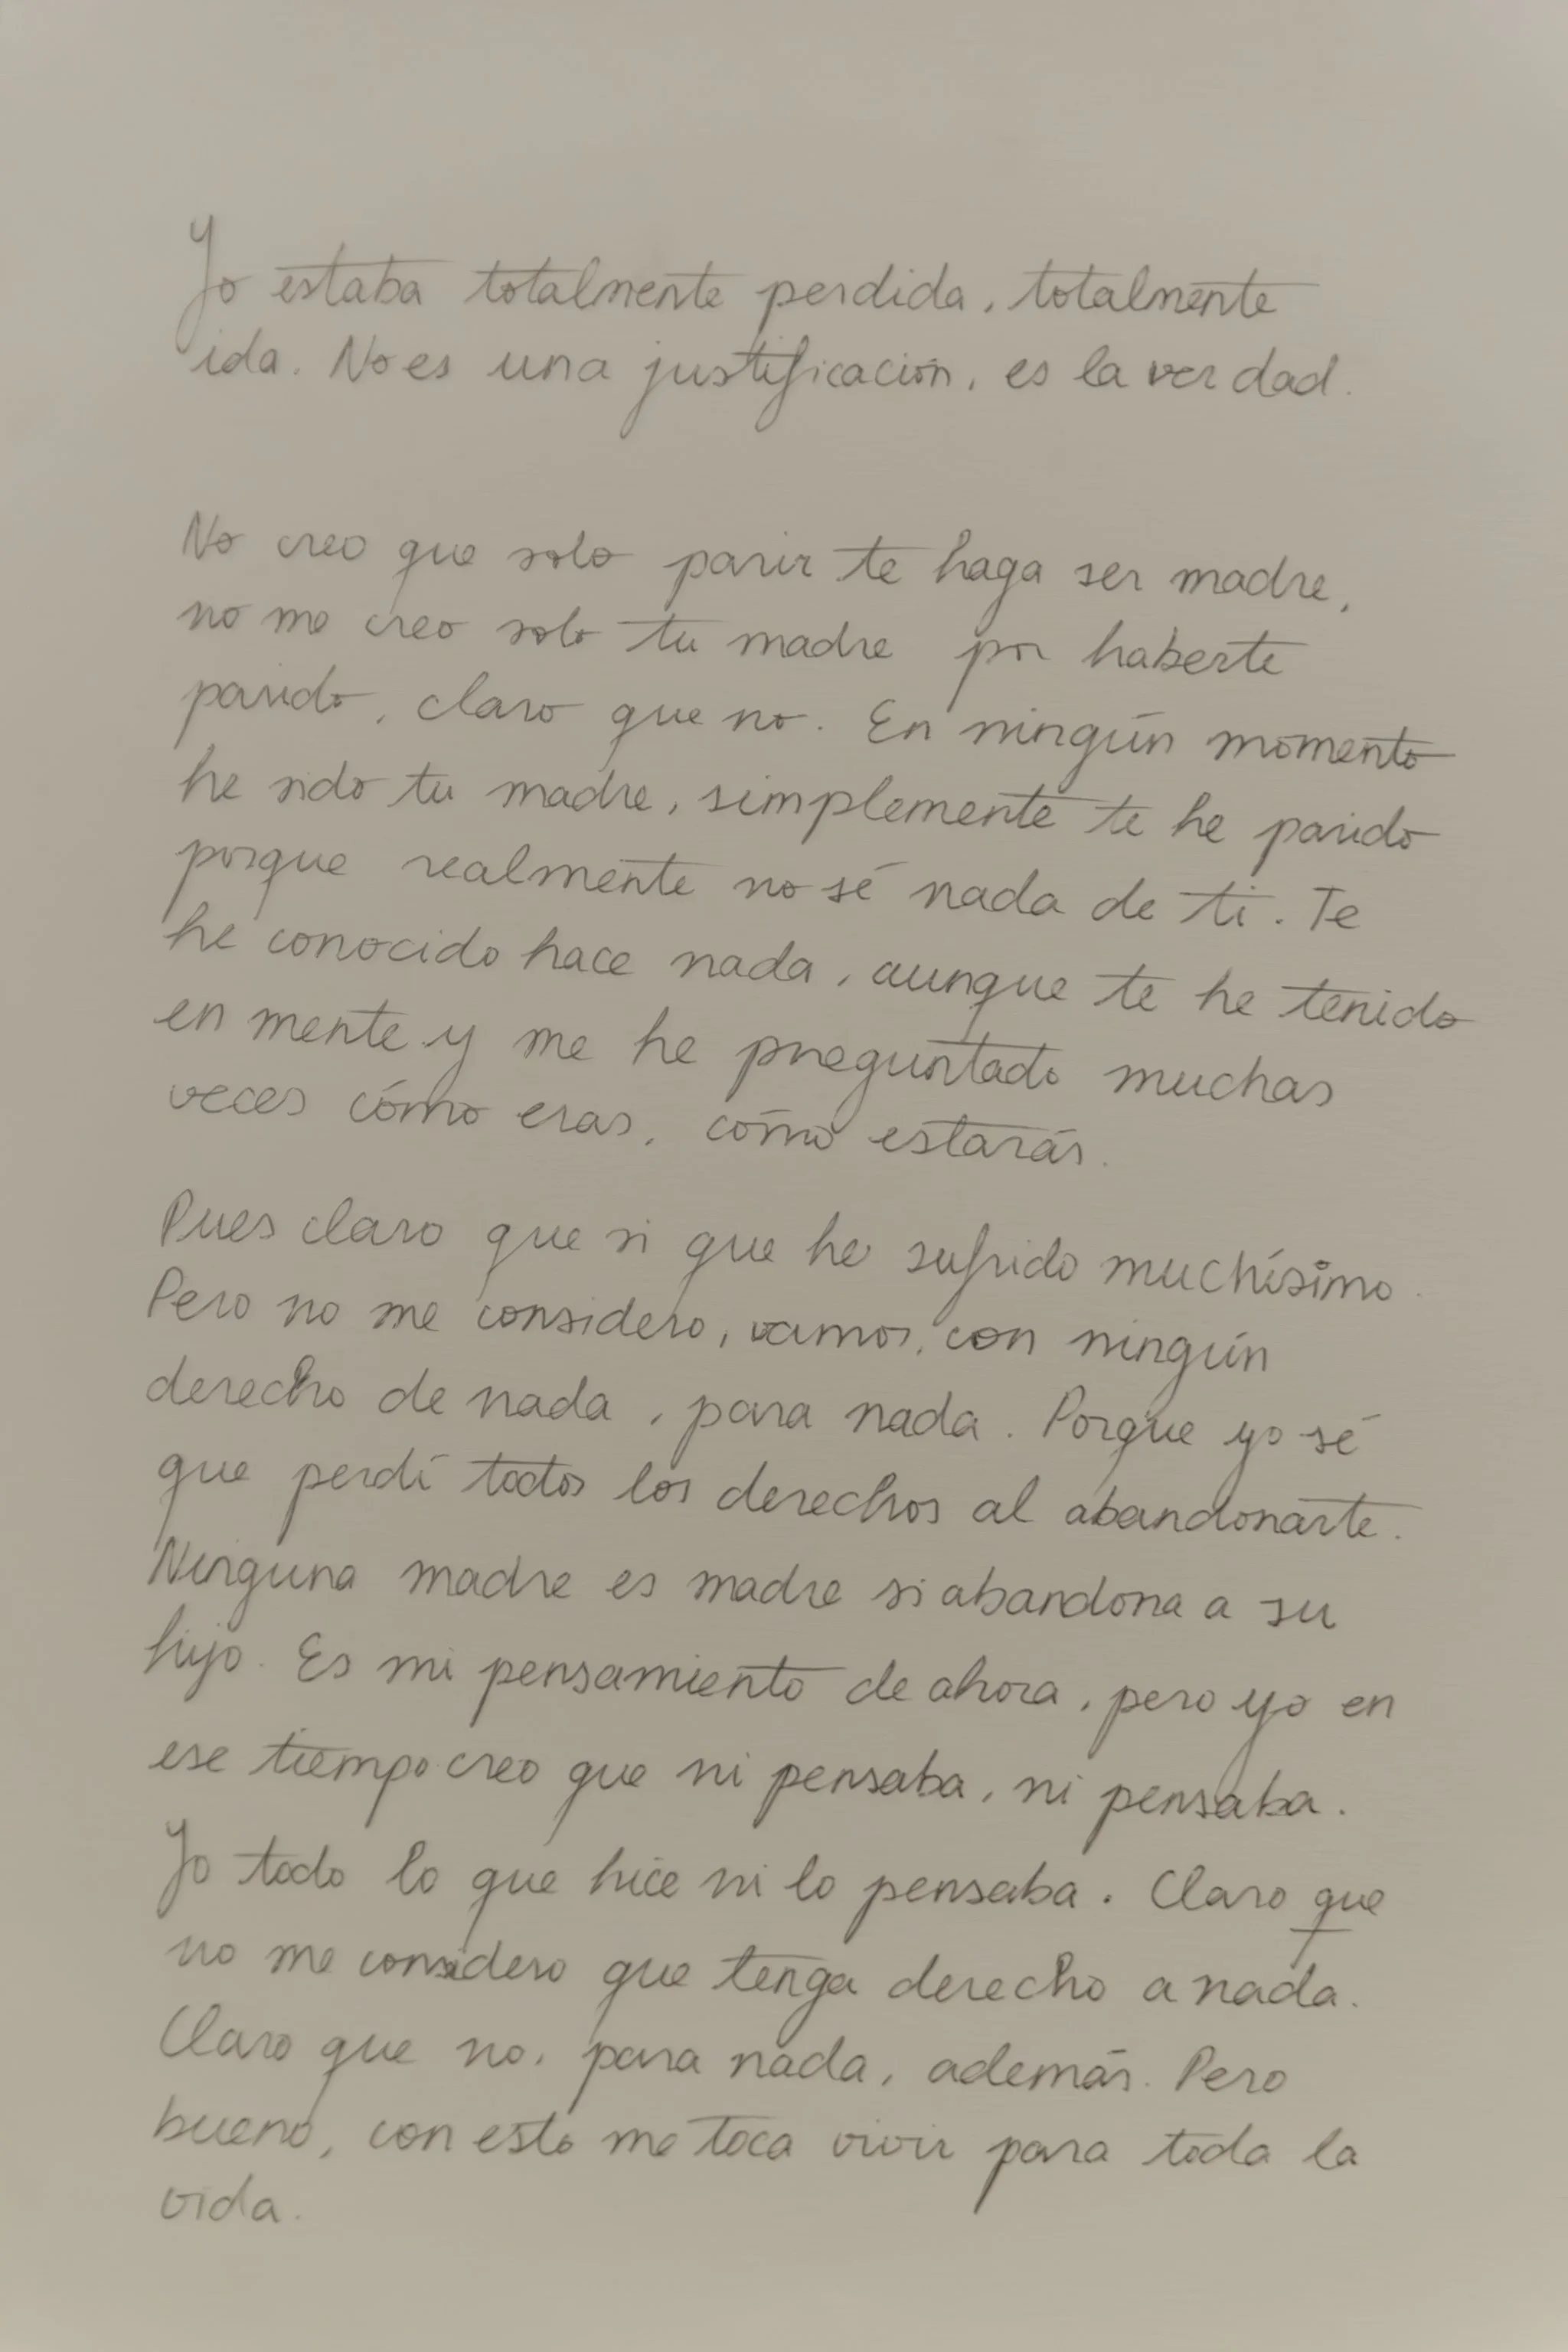 Yo estaba totalmente perdida, totalmente
ida. No es una justificación, es la verdad.
No creo que solo parir te haga ser madre,
no me creo solo tu madre por haberte
parido, claro que no. En ningún momento
he sido tu madre, simplemente te he parido
porque realmente no sé nada de ti. Te
he conocido hace nada, aunque te he tenido
en mente y me he preguntado muchas
veces cómo eras, cómo estarás.
Pues claro que si que he sufrido muchísimo.
Pero no me considero, vamos, con ningún
derecho de nada, para nada. Porque yo sé
que perdí todos los derechos al abandonarte.
Ninguna madre es madre si abandona a su
hijo. Es mi pensamiento de ahora, pero yo en
ese tiempo creo que ni pensaba, ni pensaba.
Yo todo lo que hice ni lo pensaba. Claro que
no me considero que tenga derecho a nada.
Claro que no, para nada, además. Pero
bueno, con esto me toca vivir para toda la
vida.